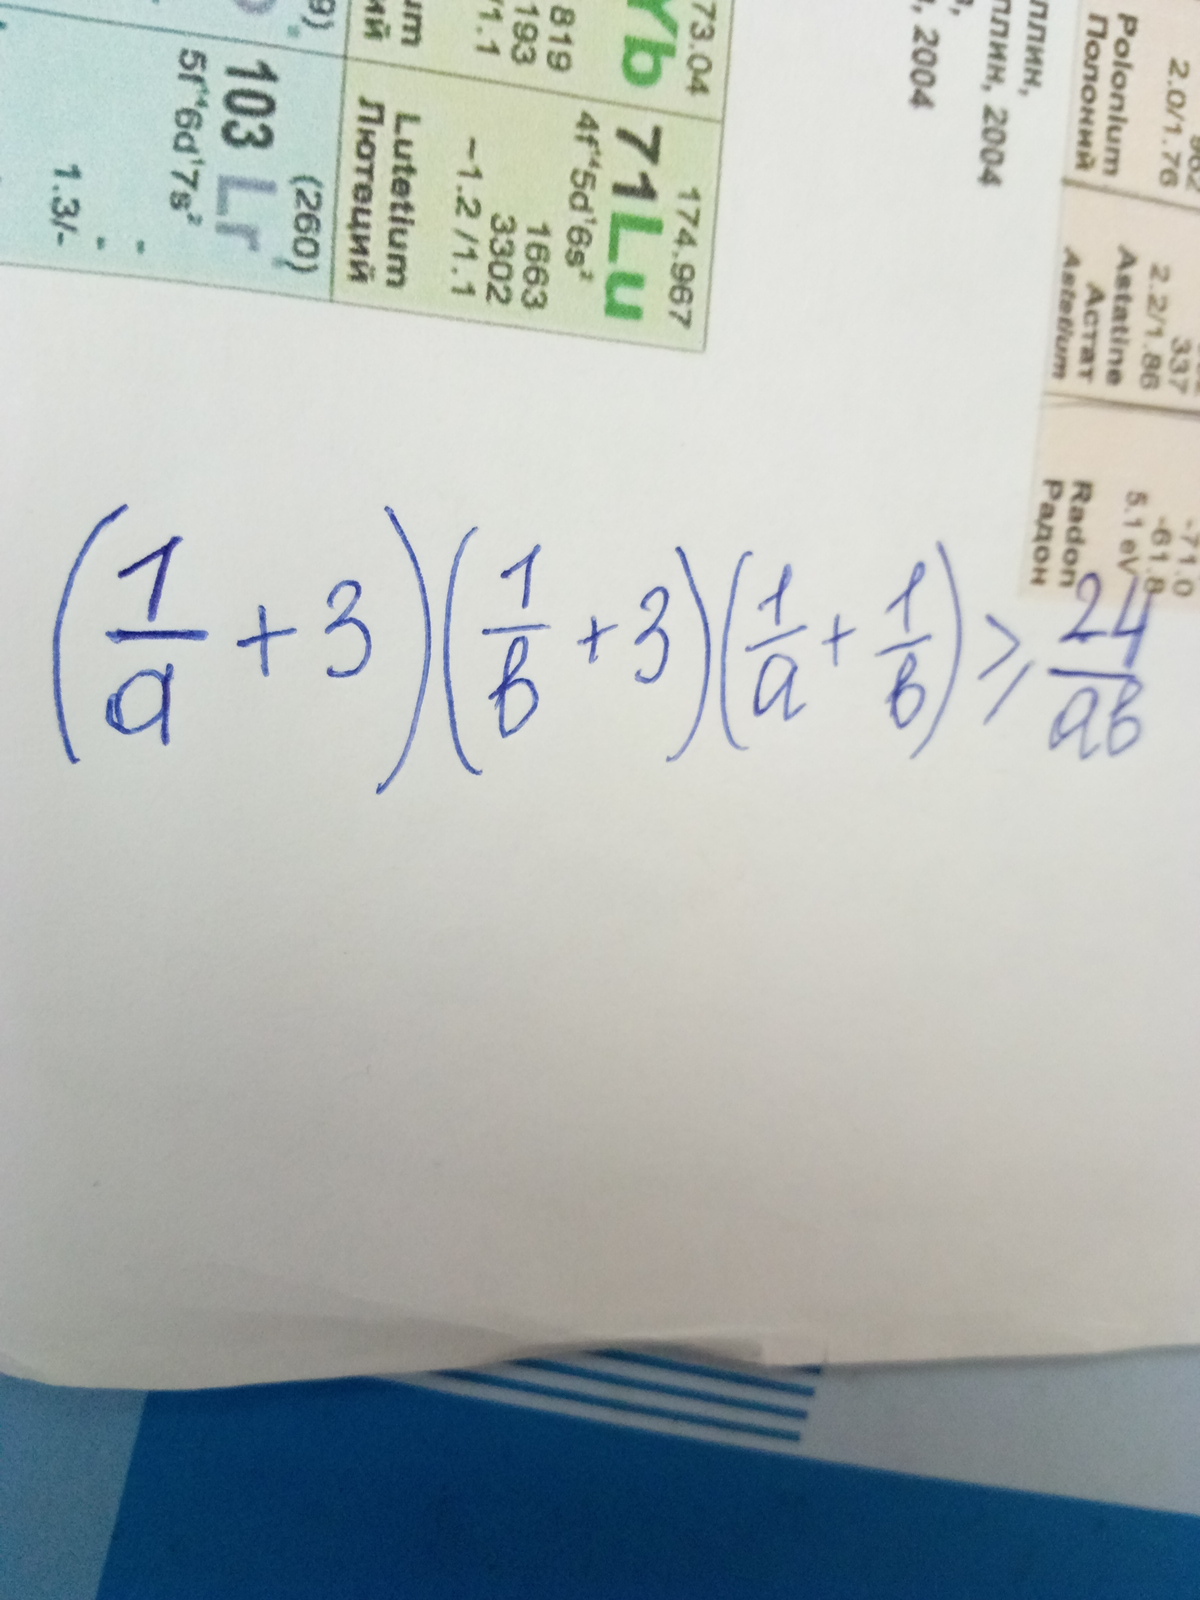 73.04
Yb
819
193
/1.1
um
ий
9)
174.967
71 Lu
4f¹⁴5d¹6s²
1663
3302
~1.2 /1.1
Lutetium
Лютеций
(260)
103 Lr
5f¹⁴6d¹7s²
1.3/-
ллин,
плин, 2004
, 2004
2.0/1.76
Polonium
Полоний
337
2.2/1.86
Astatine
Астат
Astatium
-71.0
-61.8
5.1 eV
Radon
Радон
(1/a + 3)(1/в + 3)(1/a + 1/в) ⩾ 24/aв